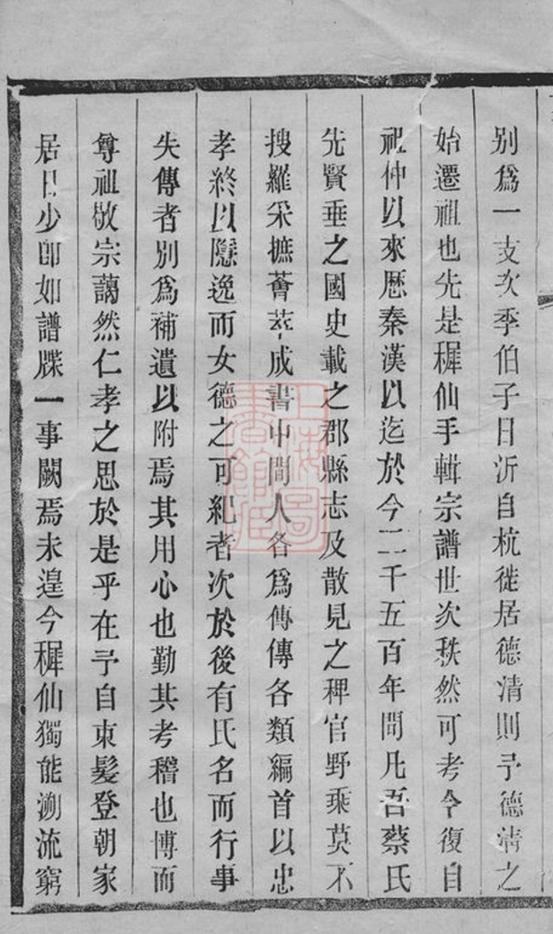 别爲一支次季伯子日沂自杭徙居德清則予德清之
始遷祖也先是穉仙手輯宗譜世次秩然可考今復自
祖仲以來歷秦漢以迄於今二千五百年間凡吾蔡氏
先賢垂之國史載之郡縣志及散見之稗官野乘莫不
搜羅采摭薈萃成書中間人各爲傳傳各類編首以忠
孝終以隱逸而女德之可紀者次於後有氏名而行事
失傳者别爲補遺以附焉其用心也勤其考稽也博而
尊祖敬宗藹然仁孝之思於是乎在予自束髮登朝家
居日少即如譜牒一事闕焉未遑今穉仙獨能溯流窮